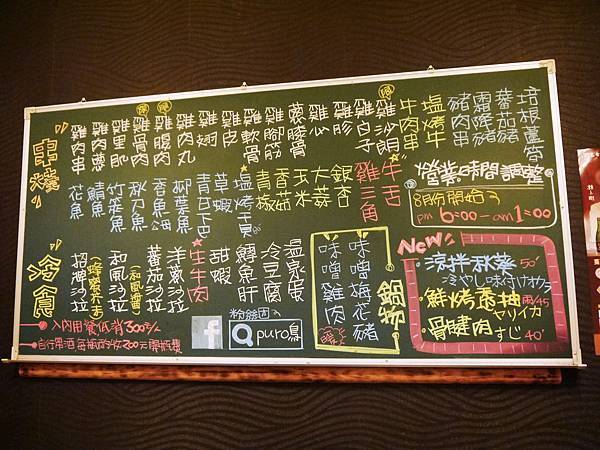 串燒
雞肉串
雞肉蔥
雞里肌
雞骨肉
雞腹肉
雞肉丸
雞翅
雞皮
雞軟骨
雞腳筋
雞膝軟骨
雞心
雞胗
雞白子
雞沙朗
牛肉串
鹽烤牛
豬肉串
霜降豬
蕃茄豬
培根蘆筍
花魚
鯖魚
竹筴魚
秋刀魚
香魚
柳葉魚
青甘下巴
草蝦
鹽烤干貝
青椒
香菇
玉米
大蒜
銀杏
雞三角
牛舌
營業時間調整
8月份開始
pm 6:00 - am 1:00
冷食
招潮沙拉
和風沙拉
(和風醬)
蕃茄沙拉
洋蔥沙拉
生牛肉
甜蝦
鱈魚肝
冷豆腐
溫泉蛋
味噌雞肉
味噌梅花豬
入內用餐低消300元/人
自行帶酒每瓶酌收200元開瓶費
粉絲團
f
puro鳥
New
涼拌秋葵 50
冷やし味付けオクラ
鮮烤透抽 兩/45
ヤリイカ
骨腱肉 すじ 40